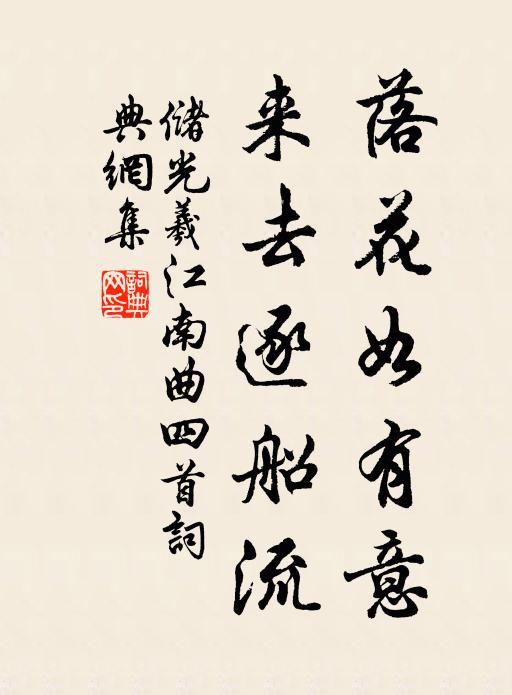 落花如有意
来去逐船流
储光羲江南曲四首词
典網集
詞典網印